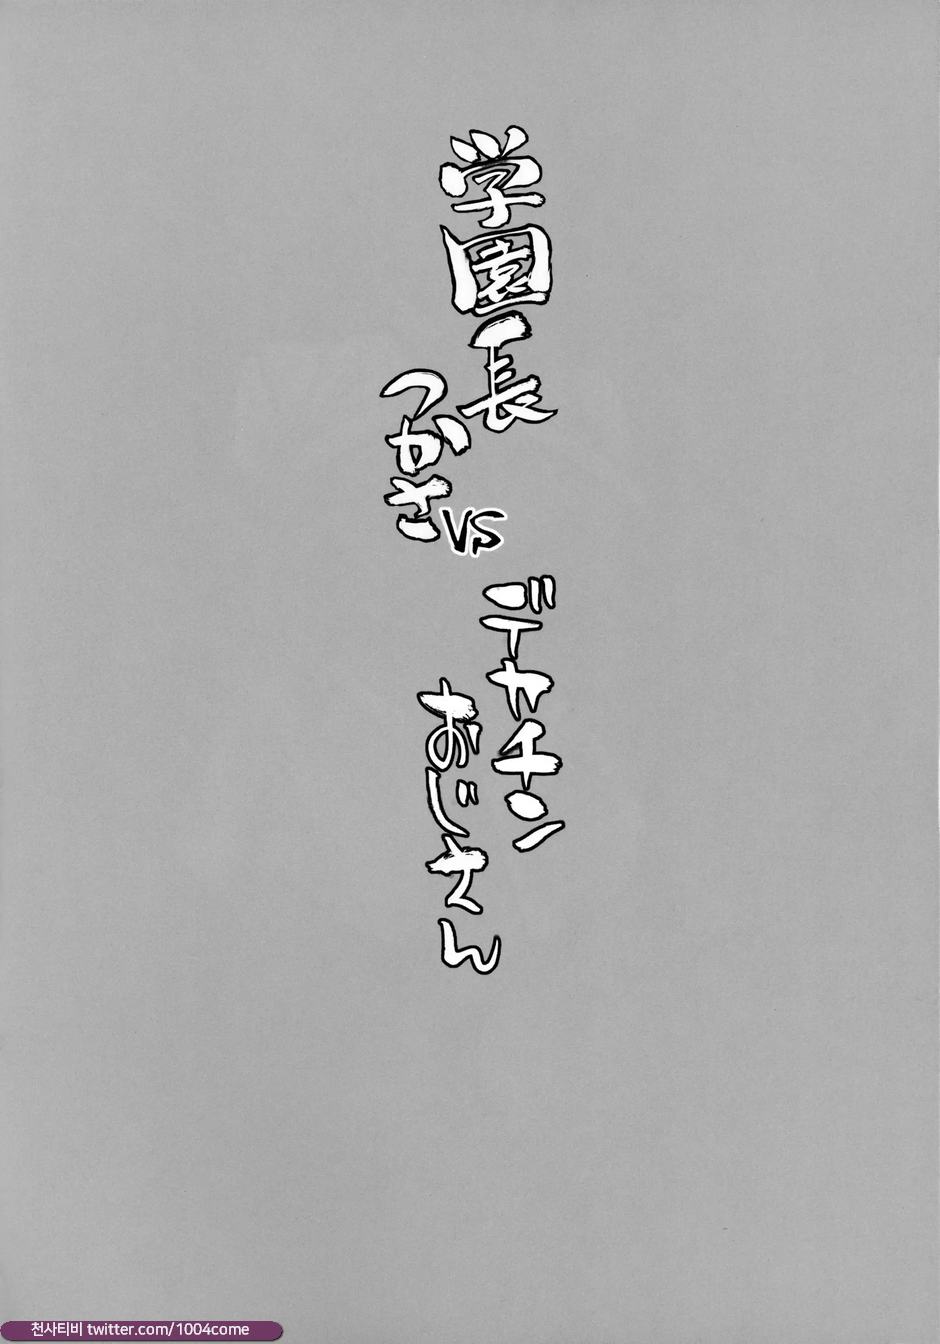 学園長
つかさ
VS
デカチン
おじさん
천사티비 twitter.com/1004come